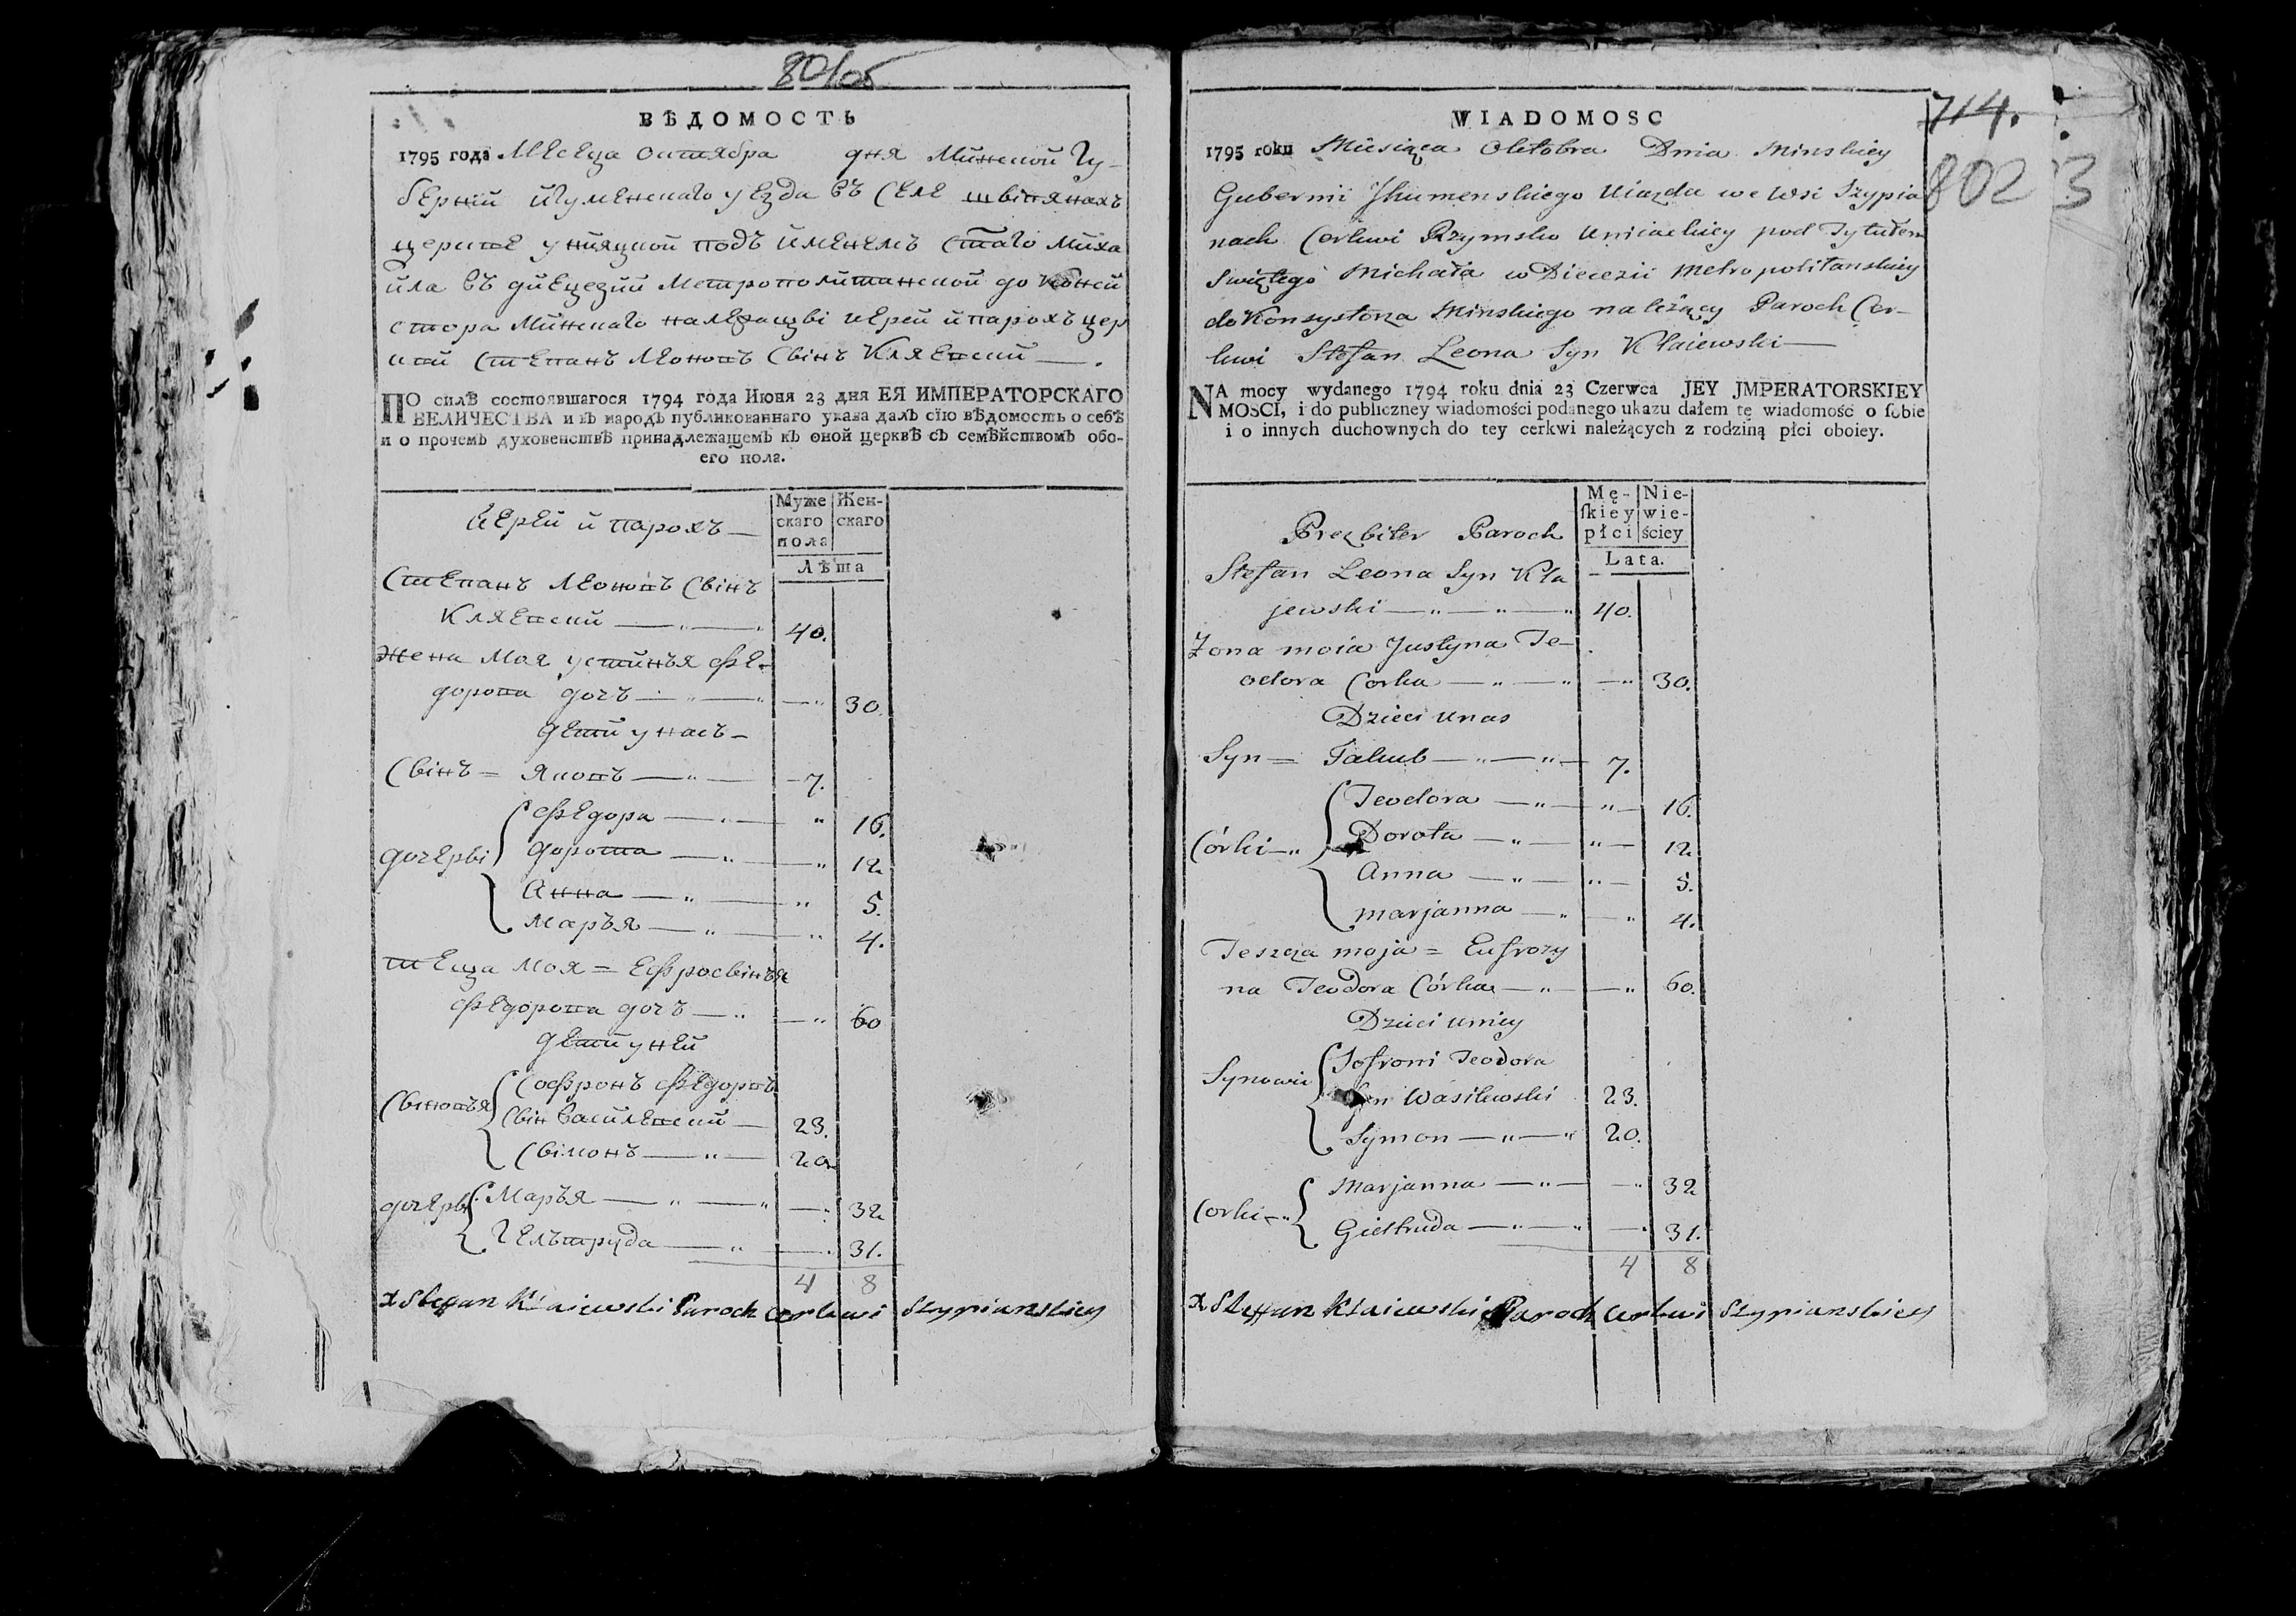 ВѢДОМОСТЬ
1795 года МЕСЕЦА Октября дня Минской Гу-
берний йгуменского уезда въ СЕЛЕ швіпянахъ
церкве унияцкой подъ йменемъ Стаго Миха
йла въ дйецезии Метрополйтанской до Консй
стора Минского належащві иерей й парохъ цер
кви Степанъ Леоновъ Свінъ Кляевский
ПО силѣ состоявшагося 1794 года Июня 23 дня ЕЯ ИМПЕРАТОРСКАГО
ВЕЛИЧЕСТВА и въ народъ публикованнаго указа далъ сїю вѣдомость о себѣ
и о прочемъ духовенствѣ принадлежащемъ къ оной церквѣ съ семѣйствомъ обо-
его пола.
Йерей й парохъ
Муже скаго пола
Жен- скаго
Лѣта
Степанъ Леоновъ Свінъ
Кляевский 40.
Жена Моя устинья Фе-
дорова дочъ 30.
дети у насъ
Свінъ = Яковъ 7.
дочерві
Федора 16.
дорота 12
Анна 5.
Маръя 4.
тЕща Моя = Ефросвінъя
Федорова дочъ 60
дети у ней
Свіновъя
Софронъ Федоровъ
Свін Василевский 23.
Свімонъ 20
дочерві
Маръя 32
Гелътруда 31.
4 8
x Steffan Kłaiewski Paroch Cerkwi Szypianskiey
80/05
WIADOMOSC
1795 roku Miesiąca Oktobra Dnia Minskiey
Gubernii Jhumenskiego Uiazda we Wsi Szypia
nach Cerkwi Rzymsko Uniackiey pod Tytułem
Swiętego Michała w Diecezii Metropolitanskiey
do Konsystorza Minskiego należący Paroch Cer-
kwi Stefan Leona Syn Kłaiewski
NA mocy wydanego 1794 roku dnia 23 Czerwca JEY JMPERATORSKIEY
MOSCI, i do publiczney wiadomości podanego ukazu dałem tę wiadomość o sobie
i o innych duchownych do tey cerkwi należących z rodziną płci oboiey.
Prezbiter Paroch
Mę- skiey płci
Nie- wie- ściey
Lata.
Stefan Leona Syn Kła
jewski 40.
Zona moia Justyna Te-
odora Corka 30.
Dzieci u nas
Syn = Jakub 7.
Córki
Teodora 16.
Dorota 12
Anna 5.
Marjanna 4.
Teszcza moja = Eufrozy
na Teodora Córka 60.
Dzieci u niey
Synowie
Sofroni Teodora
Syn Wasilewski 23.
Symon 20.
Corki
Marjanna 32
Gieltruda 31.
4 8
x Steffan Kłaiewski Paroch Cerkwi Szypianskiey
714.
802 3